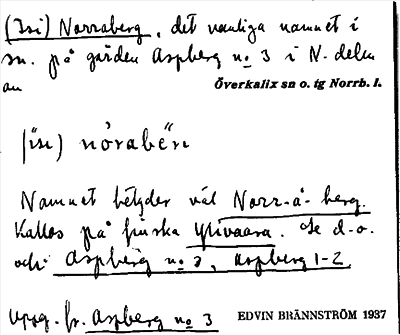 (Isi) Norraberg, det vanliga namnet i
sn. på gården Aspberg no 3 i N. delen
av
Överkalix sn o. tg Norrb. l.
nòrabė́rı
Namnet betyder väl Norr-å-berg.
Kallas på finska Ylivaara. Se d.o.
och Aspberg no 3, Aspberg 1-2
Uppg. fr. Aspberg no 3
EDVIN BRÄNNSTRÖM 1937